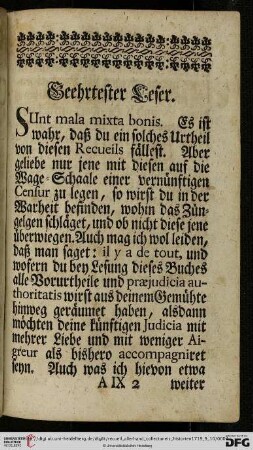 Geehrtester Leser.
SUnt mala mixta bonis. Es ist
wahr, daß du ein solches Urtheil
von diesen Recueils fällest. Aber
geliebe nur jene mit diesen auf die
Wage-Schaale einer vernünftigen
Censur zu legen, so wirst du in der
Warheit befinden, wohin das Zün-
gelgen schläget, und ob nicht diese jene
überwiegen. Auch mag ich wol leiden,
daß man saget: il y a de tout, und
wofern du bey Lesung dieses Buches
alle Vorurtheile und præjudicia au-
thoritatis wirst aus deinem Gemühte
hinweg geräumet haben, alsdann
möchten deine künftigen Judicia mit
mehrer Liebe und mit weniger Ai-
greur als bishero accompagniret
seyn. Auch was ich hievon etwa
A IX 2 weiter
DFG